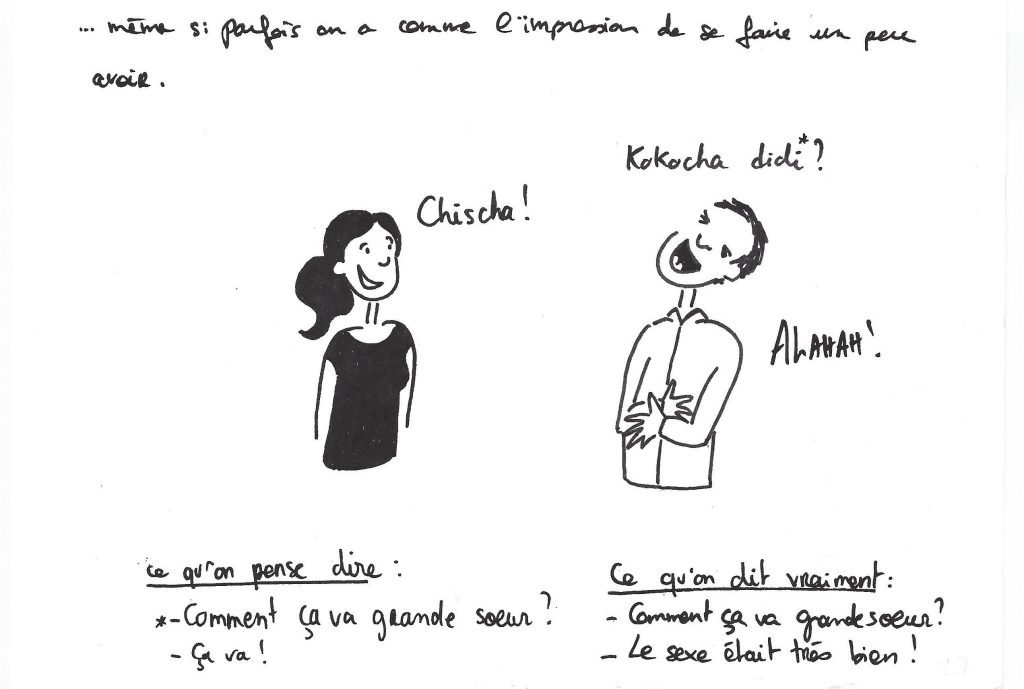 ... même si parfois on a comme l'impression de se faire un peu
avoir.
Kokocha didi*?
Chischa!
AhAHAH!
Ce qu'on pense dire :
*-Comment ça va grande soeur?
- Ça va!
Ce qu'on dit vraiment:
- Comment ça va grande soeur?
- Le sexe était très bien!